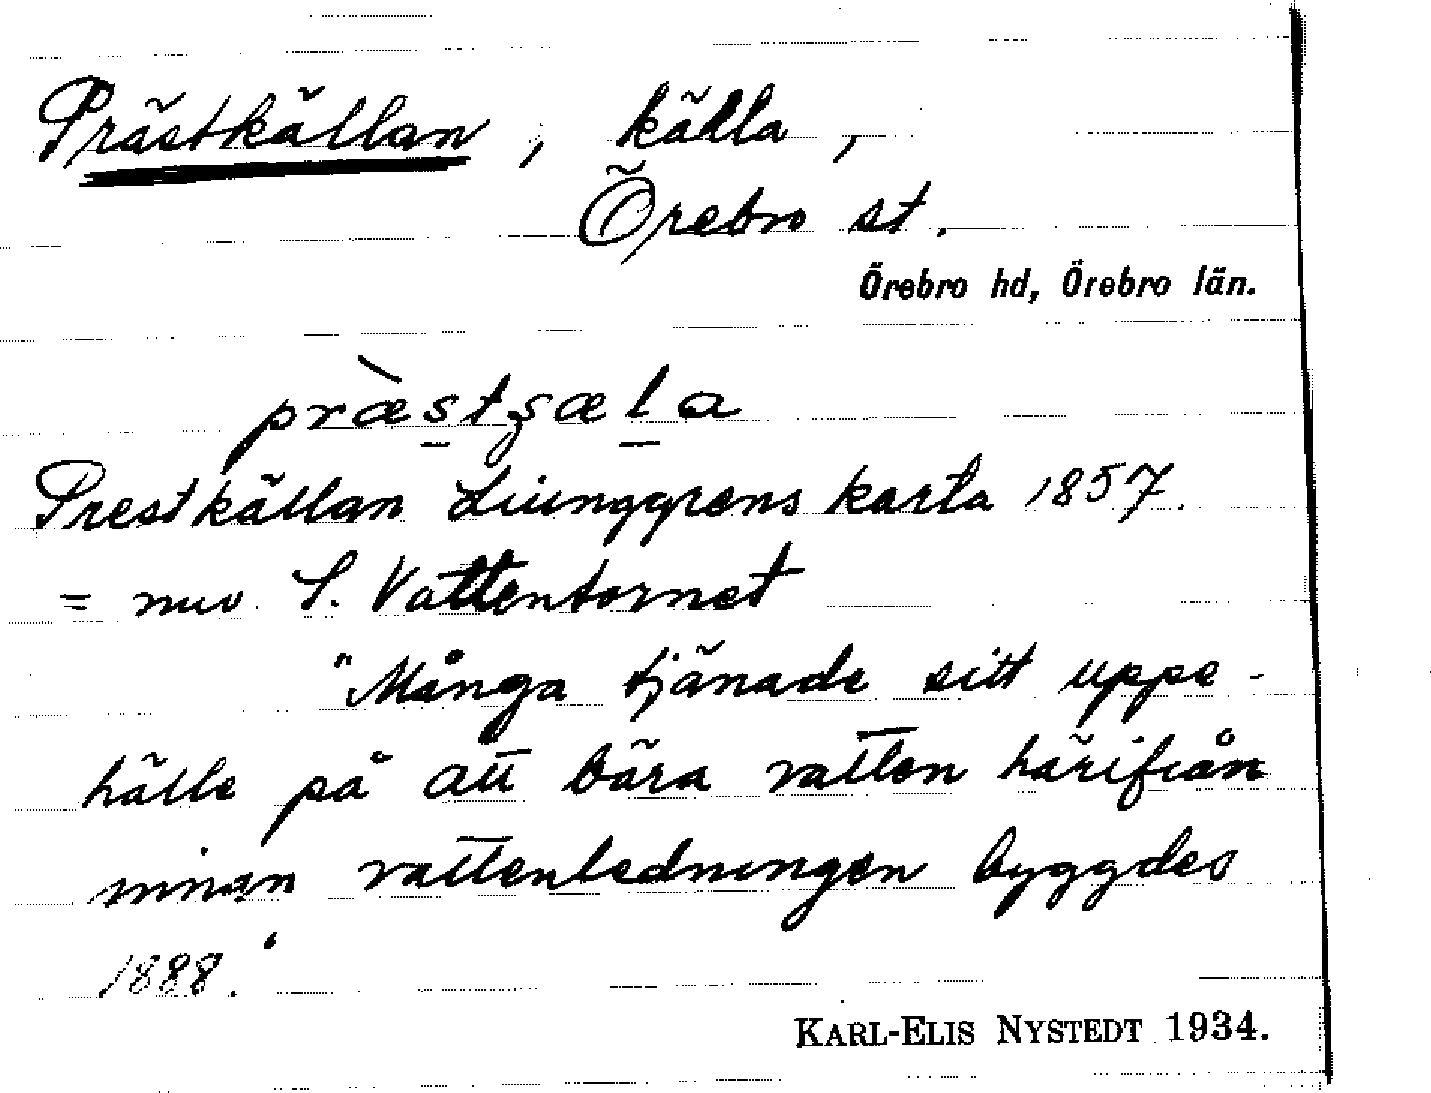 Prästkällan, källa,
Örebro st.
Örebro hd, Örebro län.
præ̀stʂæla
Prestkällan Ljunggrens karta 1857.
= nuv. S. Vattentornet
"Många tjänade sitt uppe-
hälle på att bära vatten härifrån
innan vattenledningen byggdes
1888."
KARL-ELIS NYSTEDT 1934.